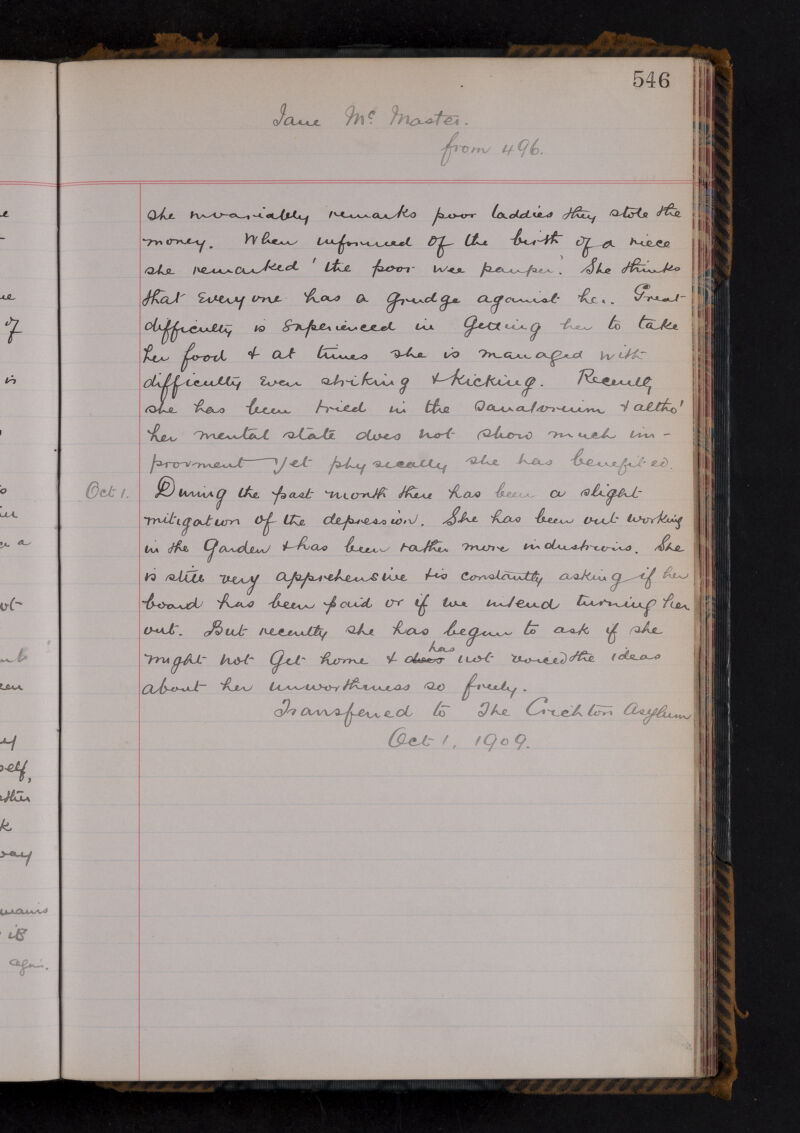 546
Jane Mc Master.
from 496.
she invariably remarks poor laddies they stole the
money. When informed of the birth of a niece
she remarked 'the poor wee pauper'. She thinks
that every one has a grudge against her. Great
difficulty is experienced in getting her to take
her food & at times she is managed with
difficulty even striking & kicking. Recently
she has been tried in the sanatorium & altho'
her mental state does not show much im-
provment yet physically she has benefited.
Oct 1. During the past month there has been a slight
mitigation of the depression. She has been out working
in the Garden & has been rather more industrious. She
is still very apprehensive & is constantly asking if her
board has been paid or if we intend turning her
out. But recently she has begun to ask if she
might not get home & does has not voiced the ideas
about her unworthiness so freely.
Transferred to The Crichton Asylum
Oct 1, 1909.